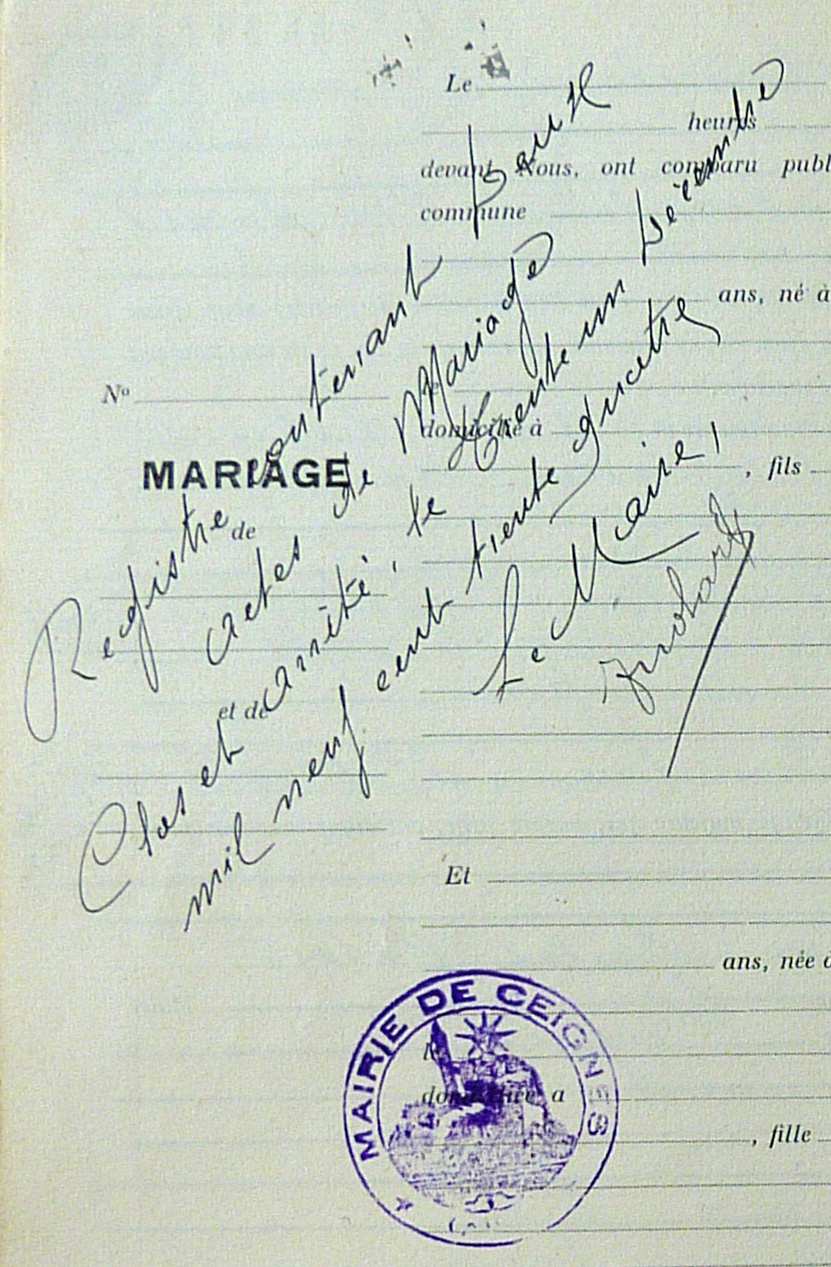 Le
heures
devant Nous, ont comparu publ
commune
ans, né à
Nº
domicilié à
MARIAGE
, fils
de
et de
Registre contenant deux
actes de Mariage
Clos et arrêté, le trente un Décembre
mil neuf cent trente quatre
Le Maire,
Et
ans, née à
le
domiciliée à
, fille
MAIRIE DE CEIGNES